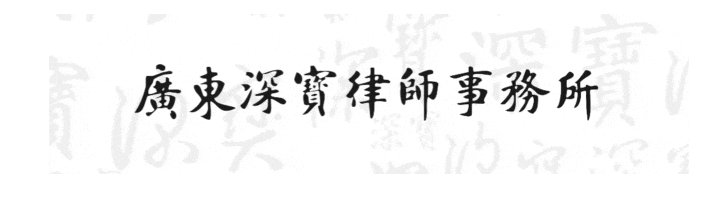 廣東深寳律師事務所